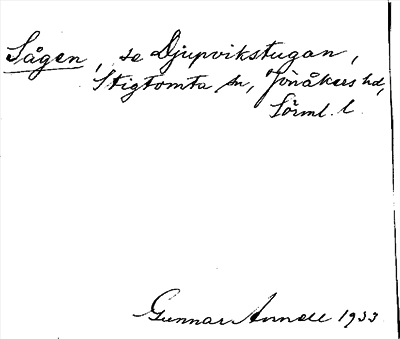 Sågen, se Djupvikstugan,
Stigtomta sn, Jönåkers hd,
Sörml. l.
Gunnar Annell 1933